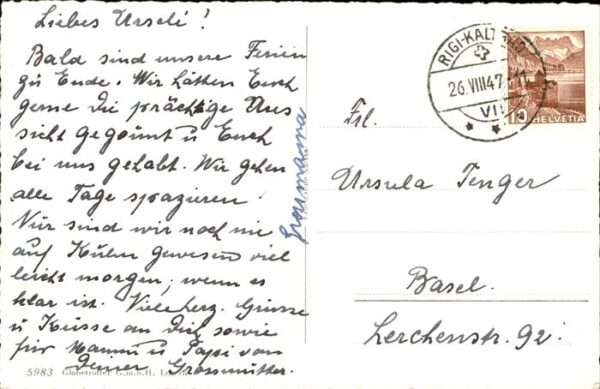 Liebes Urseli!
Bald sind unsere Ferien
zu Ende. Wir hätten Euch
gerne die prächtige Aus
sicht gegönnt u Euch
bei uns gehabt. Wir gehen
alle Tage spazieren!
Nur sind wir noch nie
auf Kulm gewesen viel
leicht morgen, wenn es
klar ist. Vieleherz. Grüsse
u Küsse an Dich sowie
für Mammi u Papi von
Deiner Grossmutter.
Grosmama
5983 Globetrotter G.m.b.H.
RIGI-KALTBAD
26.VIII.47
VII
10 HELVETIA
Frl.
Ursula Tenger
Basel.
Lerchenstr. 92.